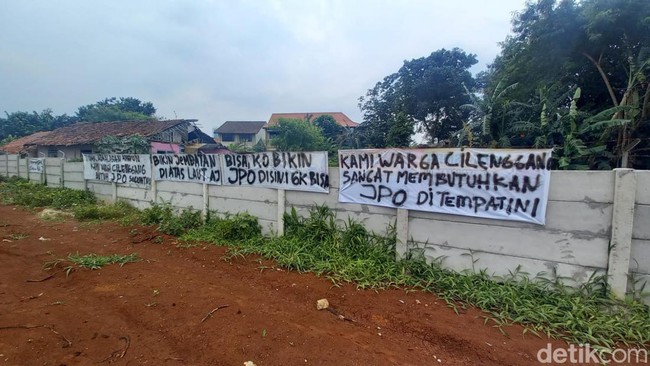 CILENGGANG
BUTUH JPO
BIKIN JEMBATAN
DIATAS LAUT AJ
BISA, KO BIKIN
JPO DISINI GK BISA
KAMI WARGA CILENGGANG
SANGAT MEMBUTUHKAN
JPO DITEMPATINI
detikcom